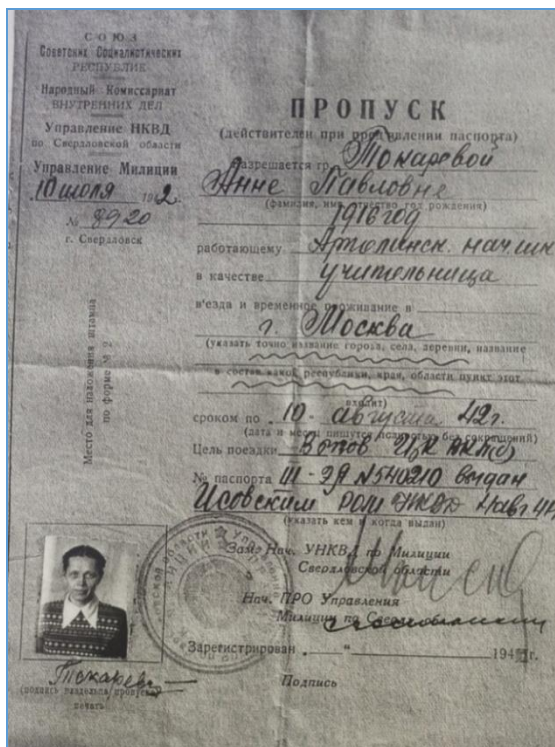 СОЮЗ
Советских Социалистических
РЕСПУБЛИК
Народный Комиссариат
ВНУТРЕННИХ ДЕЛ
Управление НКВД
по Свердловской области
Управление Милиции
10 июля 1942.
№ 8920
г. Свердловск
Место для наложения штампа
по форме № 2
ПРОПУСК
(действителен при предъявлении паспорта)
Разрешается гр. Токаревой
Анне Павловне
(фамилия, имя, отчество, год рождения)
1916 год
работающему Артинск. нач. шк
в качестве учительница
в'езда и временное проживание в
г. Москва
(указать точно название города, села, деревни, название
в состав какой республики, края, области пункт этот
входит)
сроком по 10 - августа 42г.
(дата и месяц пишутся полностью без сокращений)
Цель поездки Вызов
№ паспорта III-ЭЯ N540210 выдан
Исовским РОМ НКВД
(указать кем и когда выдан)
Зам. Нач. УНКВД по Милиции
Свердловской области
Нач. ПРО Управления
Милиции по
Зарегистрирован „ — “ 194 г.
Подпись
Токарева
(подпись владельца пропуска)
печать